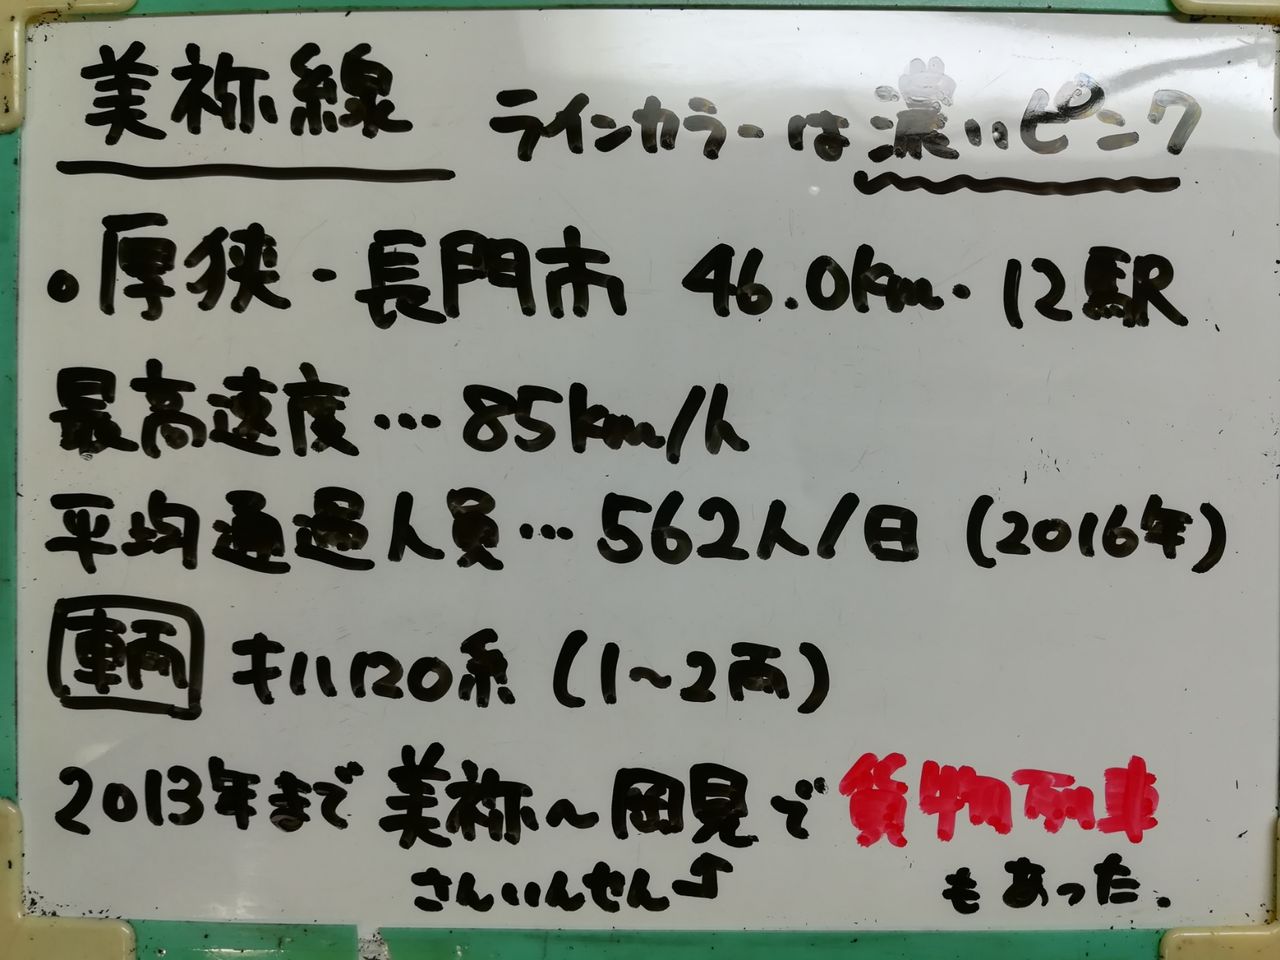 美祢線 ラインカラーは濃いピンク
・厚狭・長門市 46.0km・12駅
最高速度…85km/h
平均通過人員…562人/日(2016年)
車両 キハ120系(1~2両)
2013年まで美祢~岡見で貨物列車
さんいんせん もあった.